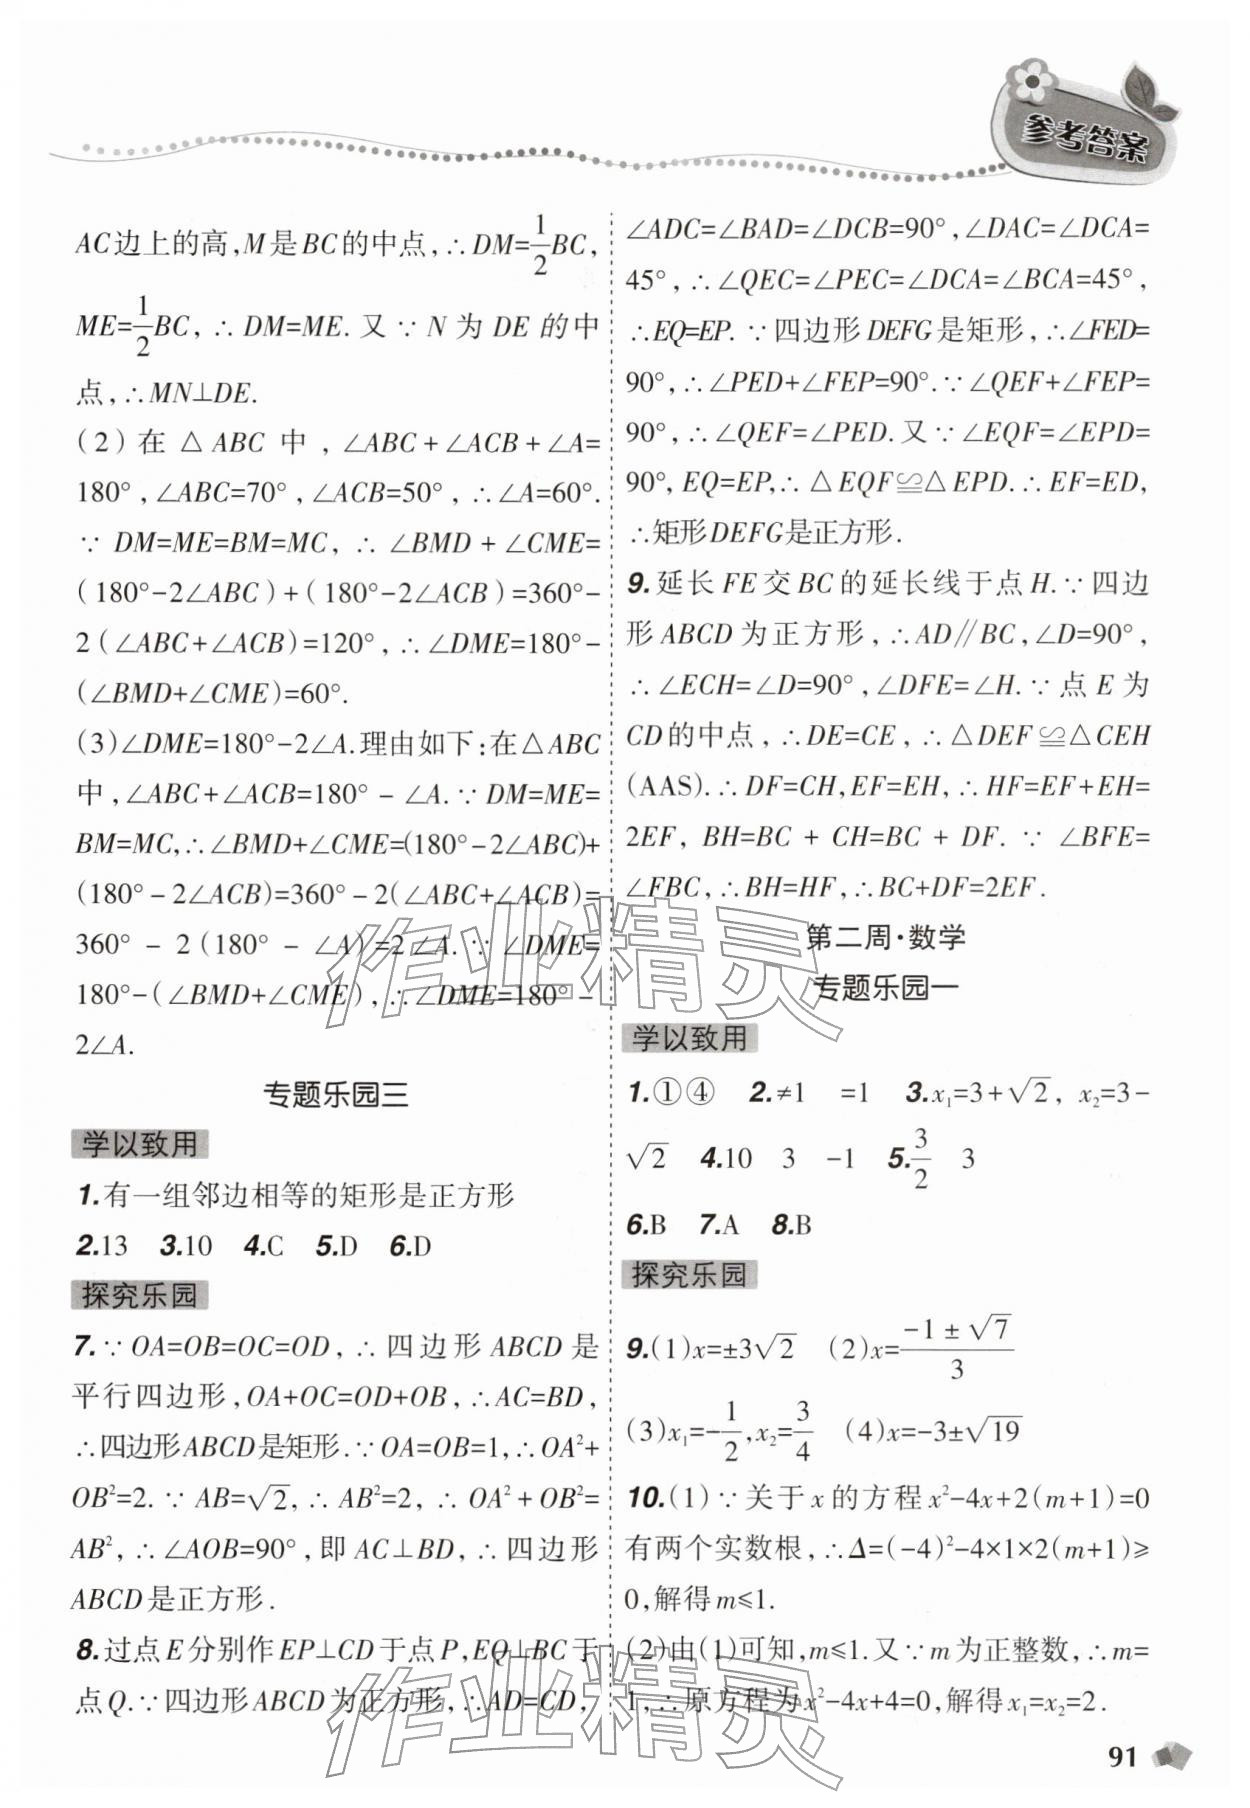 参考答案
AC边上的高,M是BC的中点,∴DM=1/2BC,
ME=1/2BC,∴DM=ME.又∵N为DE的中
点,∴MN⊥DE.
(2)在△ABC中,∠ABC+∠ACB+∠A=
180°,∠ABC=70°,∠ACB=50°,∴∠A=60°.
∵DM=ME=BM=MC,∴∠BMD+∠CME=
(180°-2∠ABC)+(180°-2∠ACB)=360°-
2(∠ABC+∠ACB)=120°,∴∠DME=180°-
(∠BMD+∠CME)=60°.
(3)∠DME=180°-2∠A.理由如下:在△ABC
中,∠ABC+∠ACB=180°-∠A.∵DM=ME=
BM=MC,∴∠BMD+∠CME=(180°-2∠ABC)+
(180°-2∠ACB)=360°-2(∠ABC+∠ACB)=
360°-2(180°-∠A)=2∠A.∵∠DME=
180°-(∠BMD+∠CME),∴∠DME=180°-
2∠A.
专题乐园三
学以致用
1.有一组邻边相等的矩形是正方形
2.13 3.10 4.C 5.D 6.D
探究乐园
7.∵OA=OB=OC=OD,∴四边形ABCD是
平行四边形,OA+OC=OD+OB,∴AC=BD,
∴四边形ABCD是矩形.∵OA=OB=1,∴OA²+
OB²=2.∵AB=√2,∴AB²=2,∴OA²+OB²=
AB²,∴∠AOB=90°,即AC⊥BD,∴四边形
ABCD是正方形.
8.过点E分别作EP⊥CD于点P,EQ⊥BC于
点Q.∵四边形ABCD为正方形,∴AD=CD,
∠ADC=∠BAD=∠DCB=90°,∠DAC=∠DCA=
45°,∴∠QEC=∠PEC=∠DCA=∠BCA=45°,
∴EQ=EP.∵四边形DEFG是矩形,∴∠FED=
90°,∴∠PED+∠FEP=90°.∵∠QEF+∠FEP=
90°,∴∠QEF=∠PED.又∵∠EQF=∠EPD=
90°,EQ=EP,∴△EQF≌△EPD.∴EF=ED,
∴矩形DEFG是正方形.
9.延长FE交BC的延长线于点H.∵四边
形ABCD为正方形,∴AD∥BC,∠D=90°,
∴∠ECH=∠D=90°,∠DFE=∠H.∵点E为
CD的中点,∴DE=CE,∴△DEF≌△CEH
(AAS).∴DF=CH,EF=EH,∴HF=EF+EH=
2EF,BH=BC+CH=BC+DF.∵∠BFE=
∠FBC,∴BH=HF,∴BC+DF=2EF.
第二周·数学
专题乐园一
学以致用
1.①④ 2.≠1 =1 3.x₁=3+√2,x₂=3-
√2 4.10 3 -1 5.3/2 3
6.B 7.A 8.B
探究乐园
9.(1)x=±3√2 (2)x=(-1±√7)/3
(3)x₁=-1/2,x₂=3/4 (4)x=-3±√19
10.(1)∵关于x的方程x²-4x+2(m+1)=0
有两个实数根,∴Δ=(-4)²-4×1×2(m+1)≥
0,解得m≤1.
(2)由(1)可知,m≤1.又∵m为正整数,∴m=
1,∴原方程为x²-4x+4=0,解得x₁=x₂=2.
91
作业精灵
作业精灵